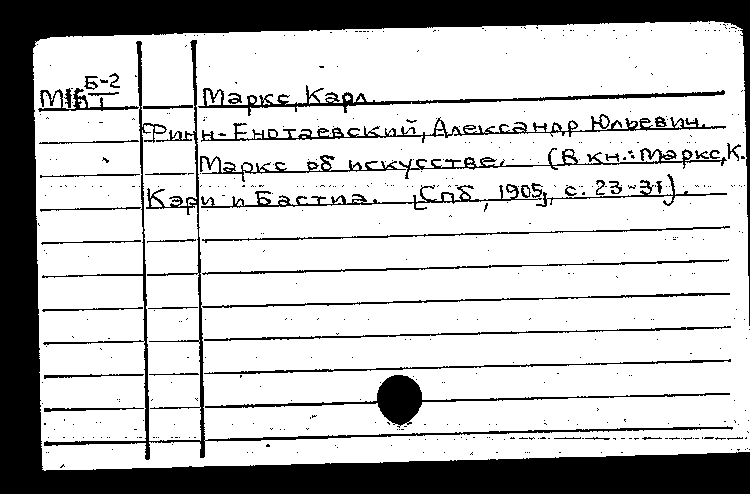 Б-2
1
Маркс, Карл.
Финн-Енотаевский, Александр Юльевич.
Маркс об искусстве. (В кн.: Маркс, К.
Кэри и Бастиа. [Спб, 1905], с. 23-31).